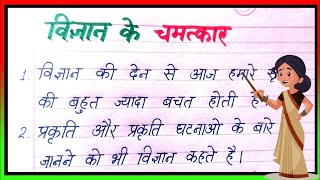 विज्ञान के चमत्कार
1. विज्ञान की देन से आज हमारे
की बहुत ज्यादा बचत होती है
2. प्रकृति और प्रकृति घटनाओ के बारे
जानने को भी विज्ञान कहते है।